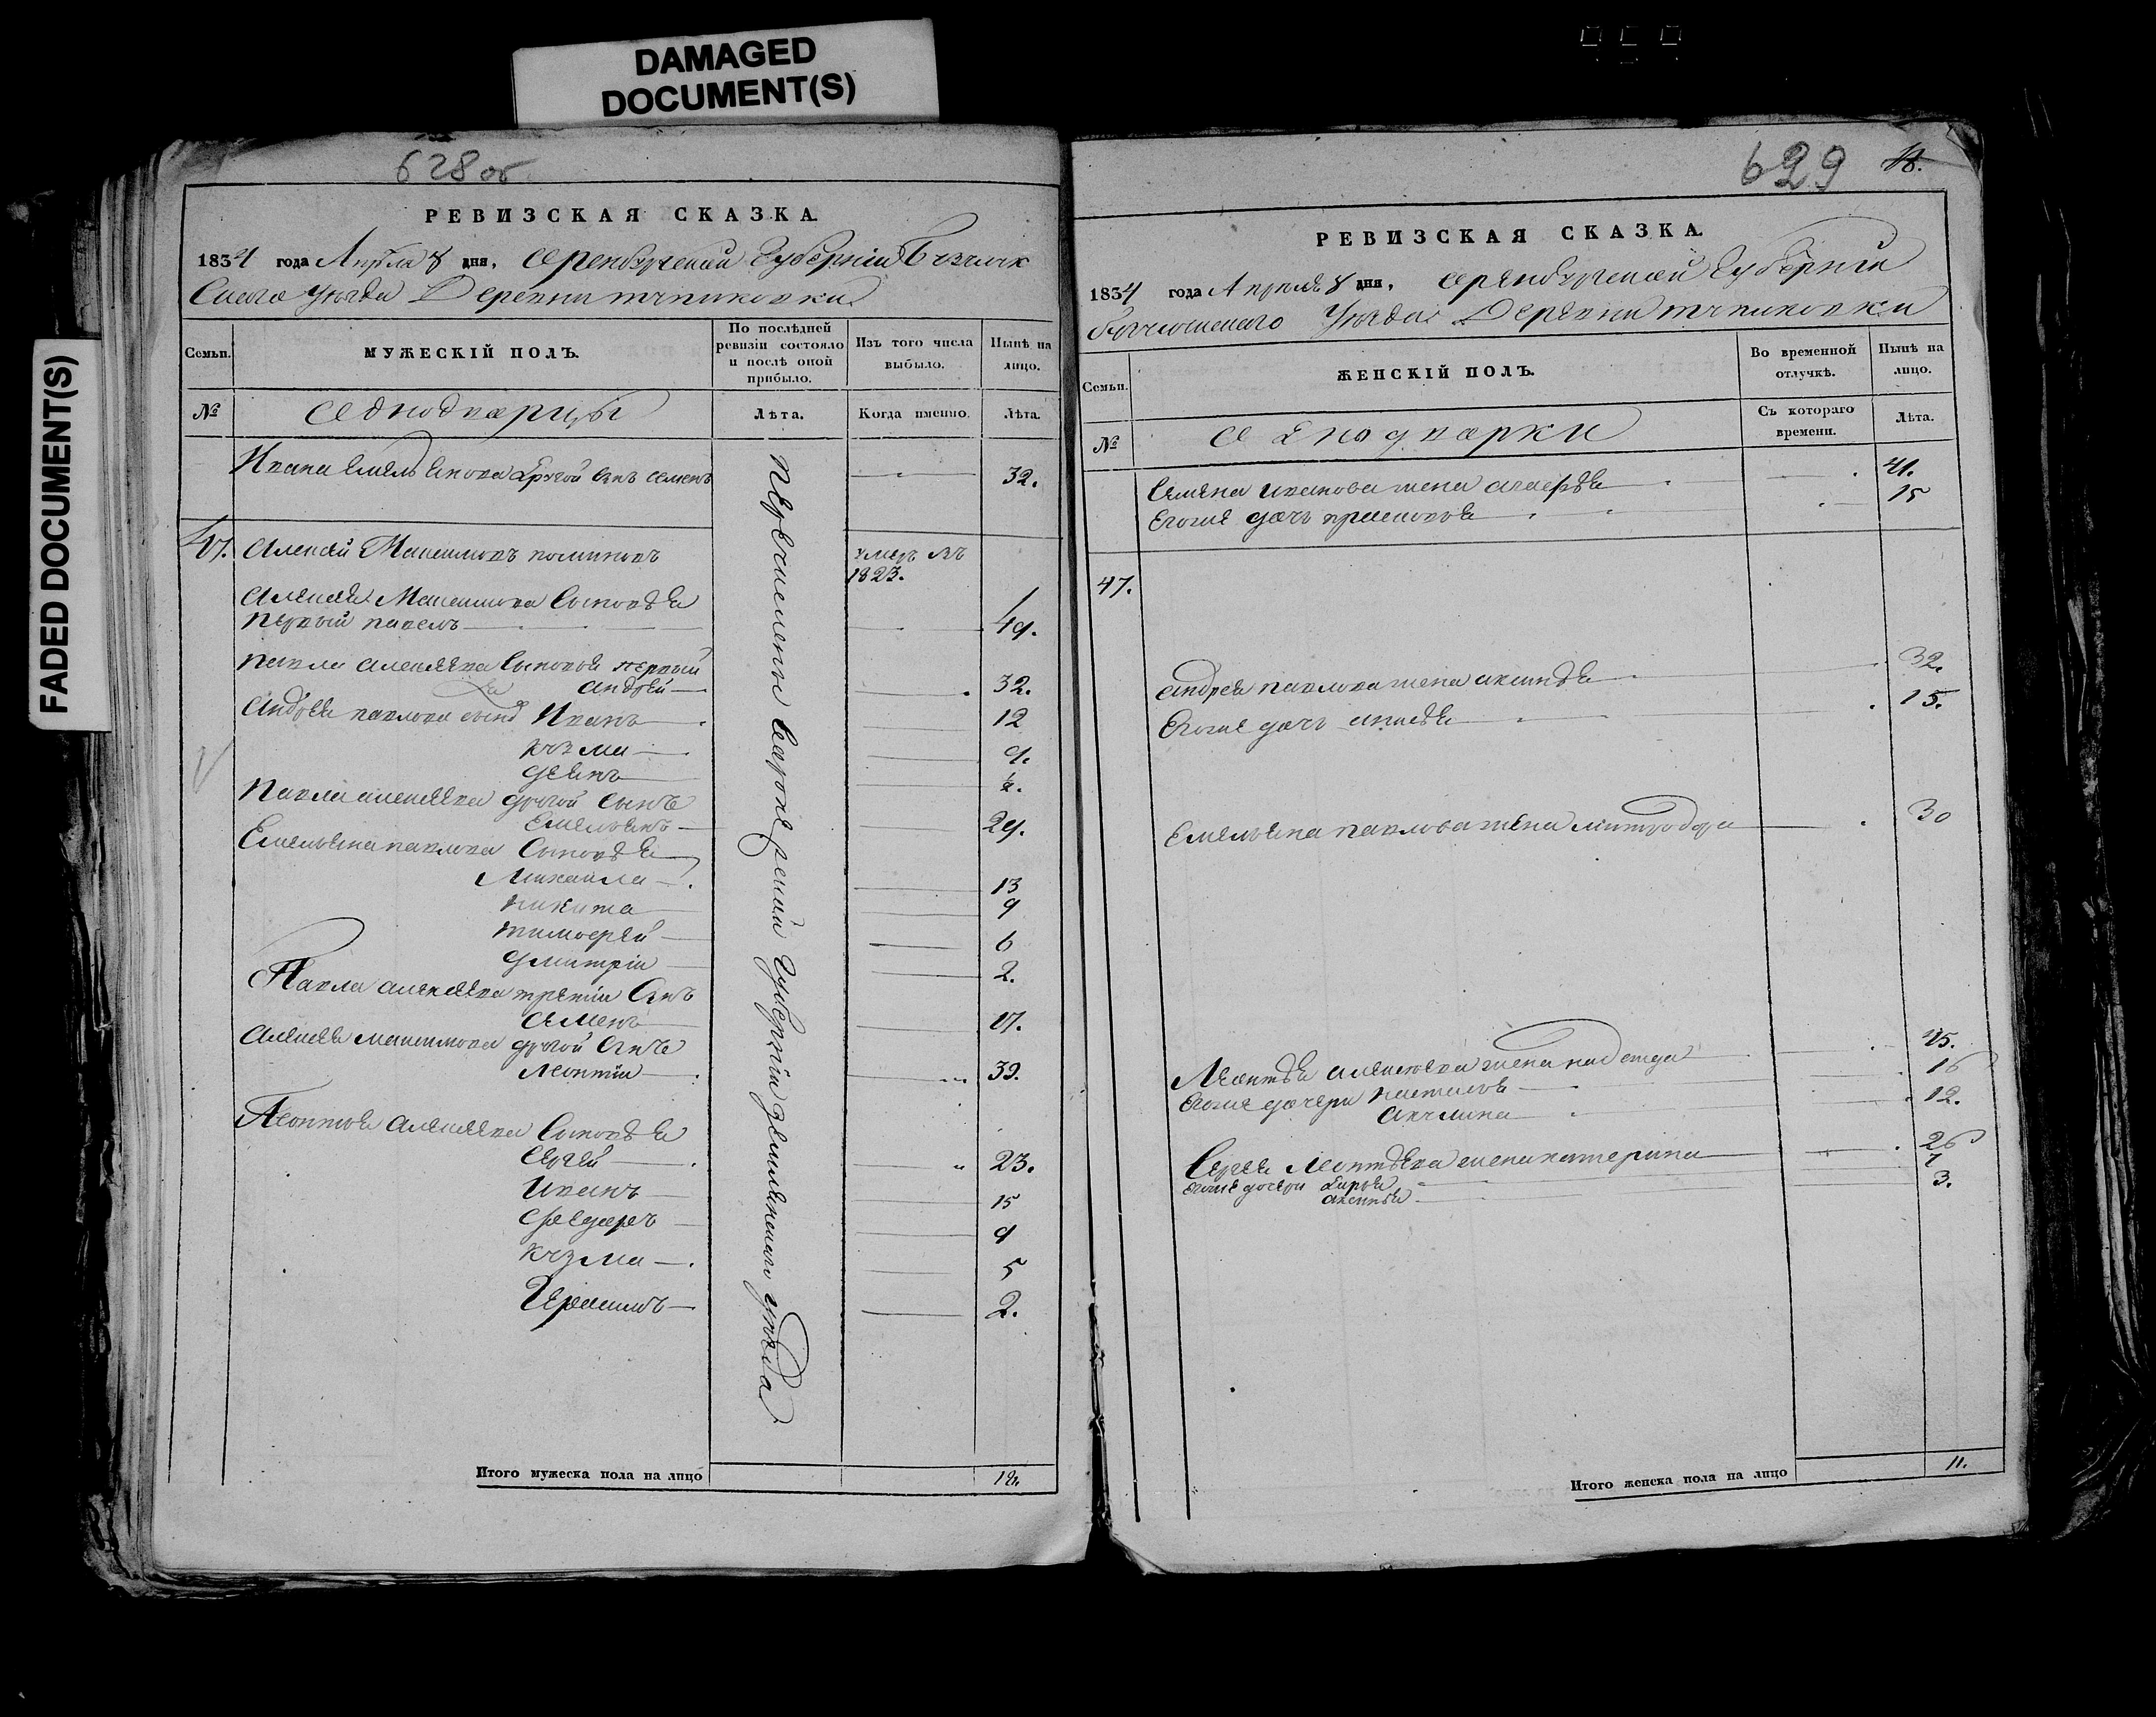 DAMAGED
DOCUMENT(S)
FADED DOCUMENT(S)
628 об
РЕВИЗСКАЯ СКАЗКА.
1834 года Апреля 8 дня, Оренбургской Губернии Бузулук
скаго Уезда Деревни
Семьи.
МУЖЕСКІЙ ПОЛЪ.
По послѣдней
ревизіи состояло
и послѣ оной
прибыло.
Изъ того числа
выбыло.
Нынѣ на
лицо.
№
Однодворцы
Лѣта.
Когда именно.
Лѣта.
Ивана Емельянова другой сынъ Семенъ 32.
47. Алексей Максимовъ умеръ въ
1823.
Алексея Максимова Сыновья
первый павелъ 49.
павла алексеева Сыновья первый
андрей 32.
Андрея павлова сынъ Иванъ 12
кузма 9.
Павла алексеева другой сынъ
Емельянъ 29.
Емельяна павлова Сыновья
Михайла 13
никита 9
тимофей 6
дмитрий 2.
Павла алексеева третий сынъ
Семенъ 17.
Алексея максимова другой сынъ
Леонтий 39.
Леонтья Алексеева Сыновья
Сергей 23.
Иванъ 15
Федоръ 9
кузма 5
Герасимъ 2.
Губернии уезда
Итого мужеска пола на лицо
629
РЕВИЗСКАЯ СКАЗКА.
1834 года Апреля 8 дня, Оренбургской Губернии
Бузулукскаго Уезда Деревни
Семьи.
ЖЕНСКІЙ ПОЛЪ.
Во временной
отлучкѣ.
Нынѣ на
лицо.
№
Однодворки
Съ котораго
времени.
Лѣта.
Семена иванова жена 41.
Егоже дочь 15
47.
андрея павлова жена аксинья 32.
Егоже дочь 15.
Емельяна павлова жена митродора 30
Леонтья алексеева жена надежда
Егоже дочери наталья 16
акулина 12.
Сергея Леонтьева жена катерина 26
егоже дочери дарья
аксинья 3.
Итого женска пола на лицо 11.